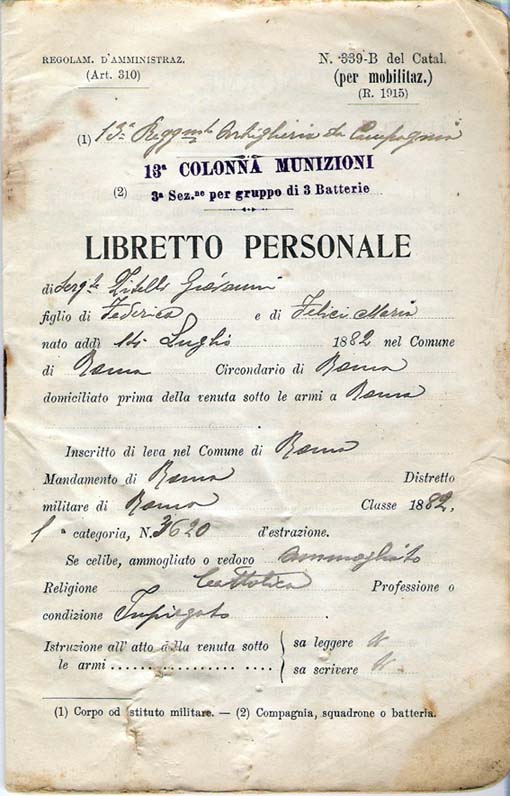 REGOLAM. D'AMMINISTRAZ.
(Art. 310)
N. 339-B del Catal.
(per mobilitaz.)
(R. 1915)
(1) 13ª Reggmto Artiglieria da Campagna
13ª COLONNA MUNIZIONI
(2) 3ª Sez.ne per gruppo di 3 Batterie
LIBRETTO PERSONALE
di Serg.te Zitelli Giovanni
figlio di Federico e di Felici Maria
nato addì 14 Luglio 1882 nel Comune
di Roma Circondario di Roma
domiciliato prima della venuta sotto le armi a Roma
Inscritto di leva nel Comune di Roma
Mandamento di Roma Distretto
militare di Roma Classe 1882,
1ª categoria, N. 3620 d'estrazione.
Se celibe, ammogliato o vedovo ammogliato
Religione Cattolica Professione o
condizione Impiegato
Istruzione all'atto della venuta sotto le armi { sa leggere
sa scrivere
(1) Corpo od istituto militare. — (2) Compagnia, squadrone o batteria.